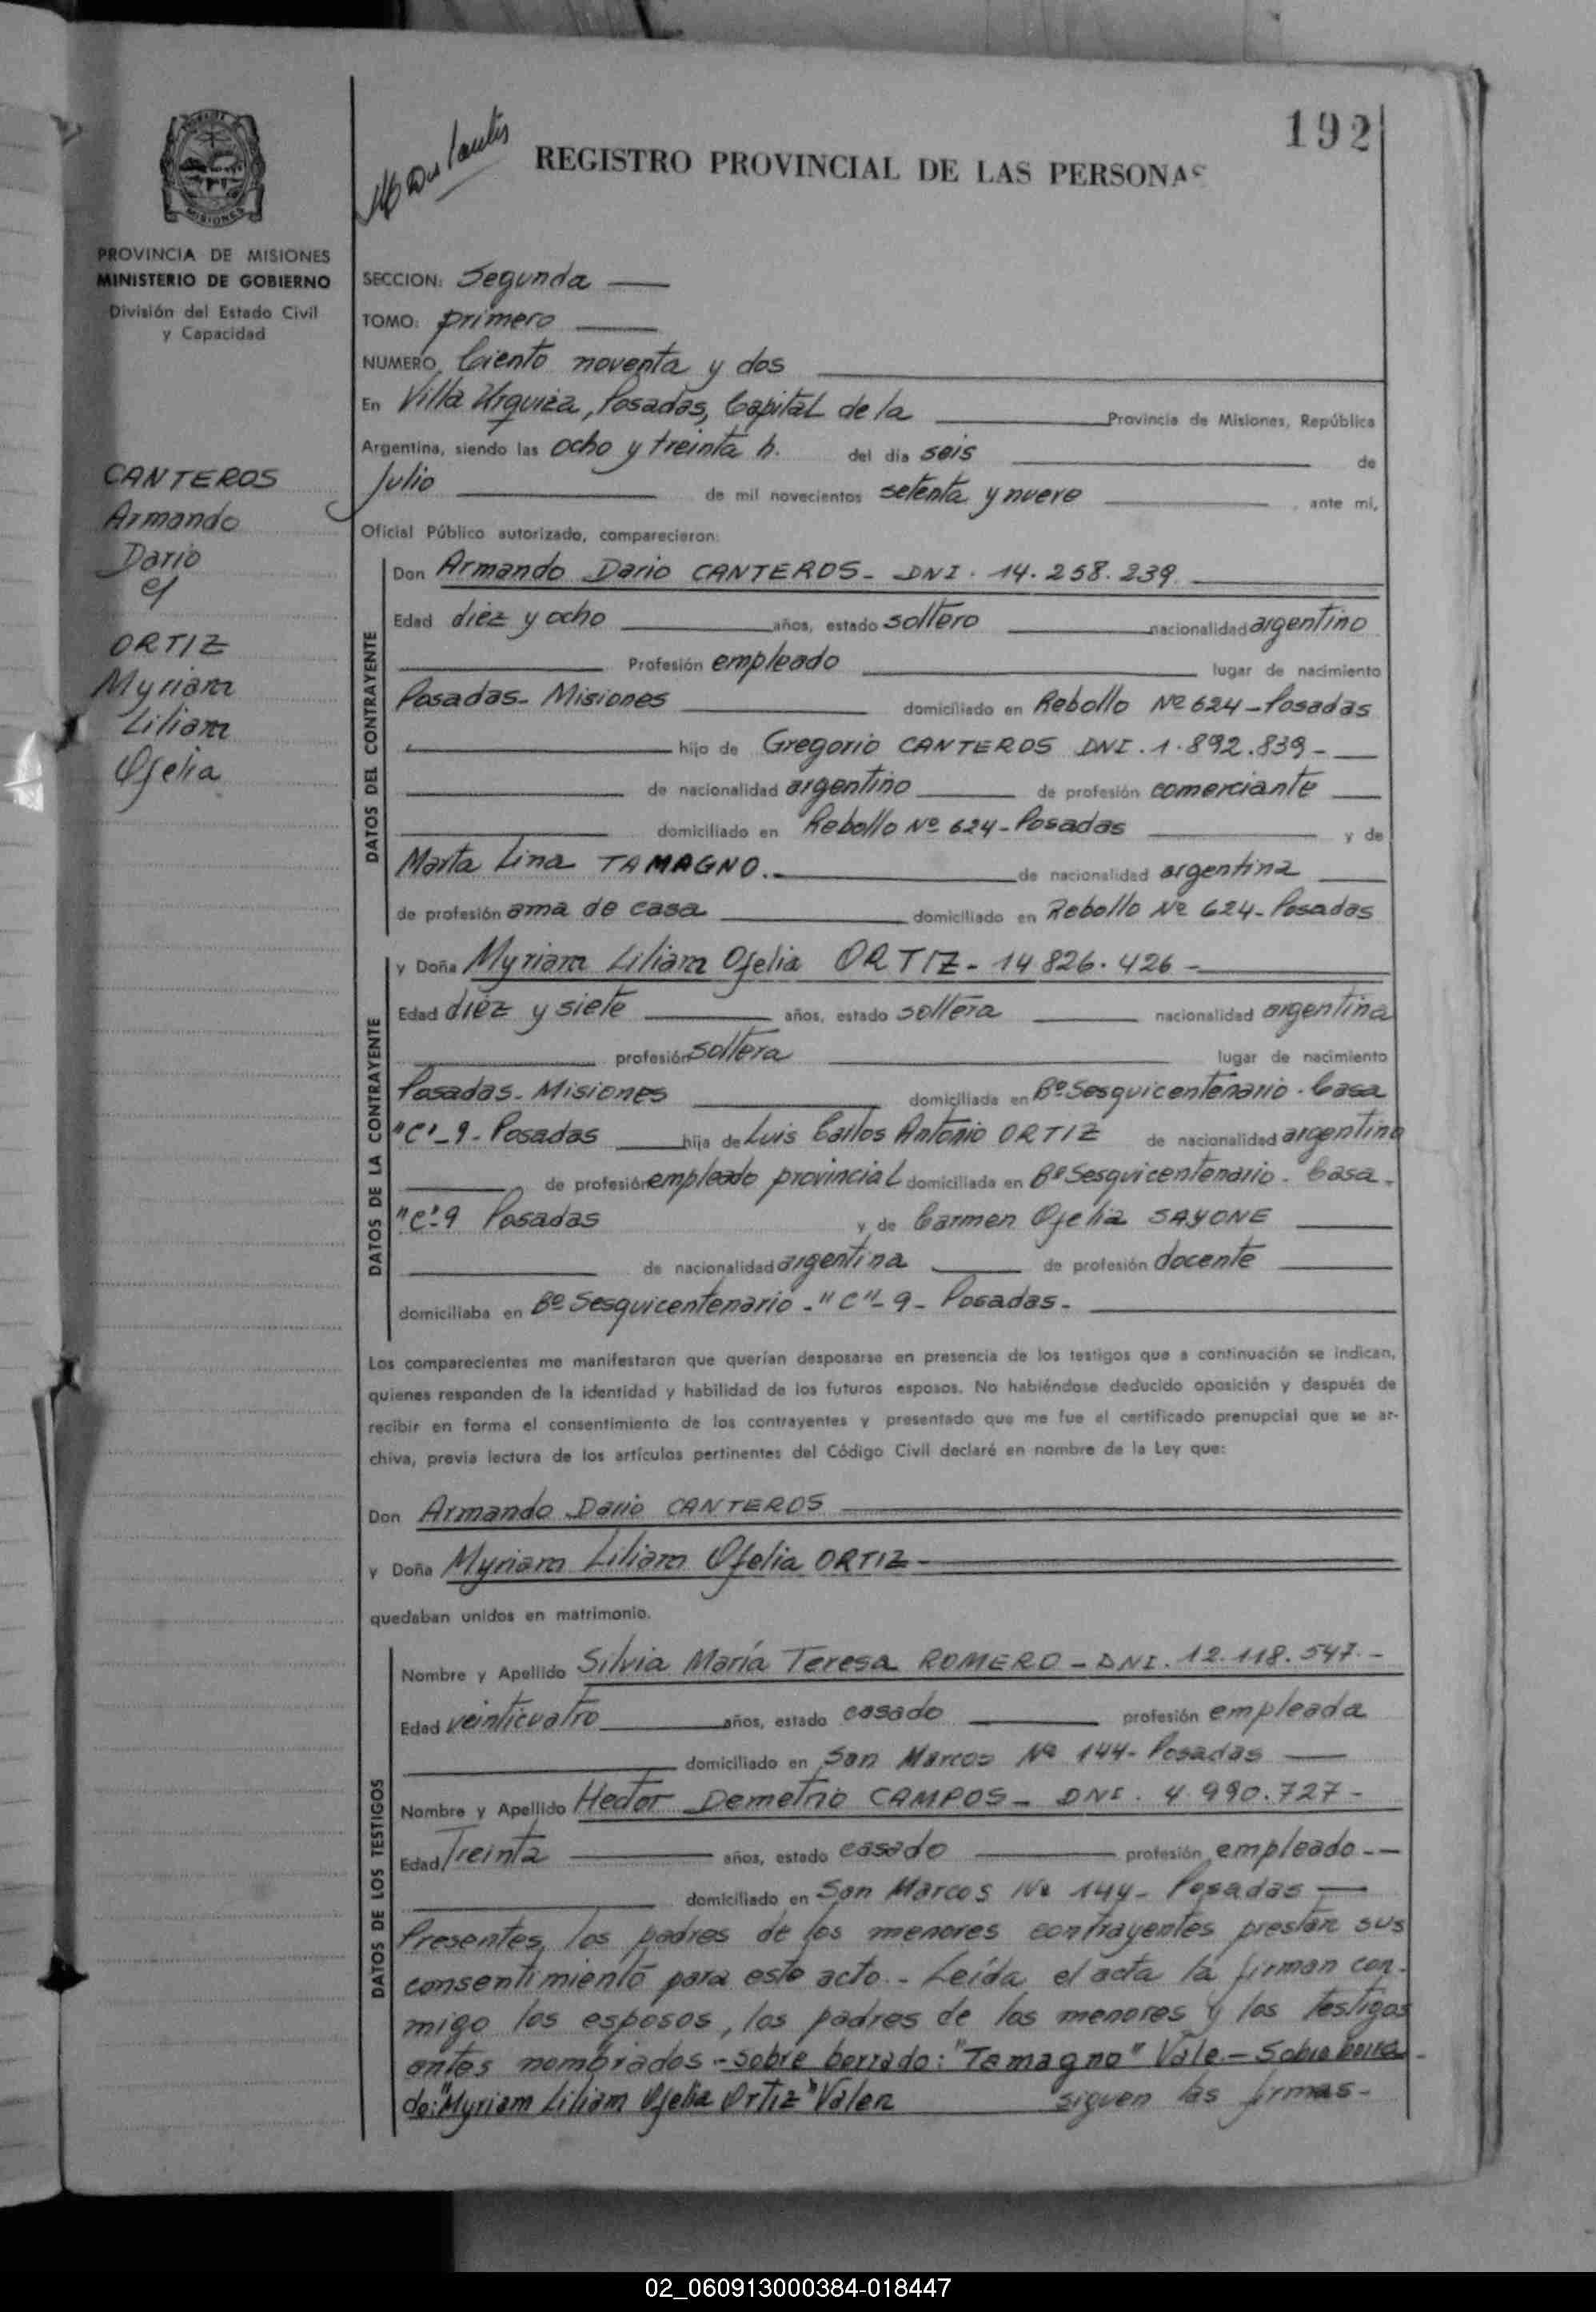 192
REGISTRO PROVINCIAL DE LAS PERSONAS
MISIONES
PROVINCIA DE MISIONES
MINISTERIO DE GOBIERNO
División del Estado Civil
y Capacidad
CANTEROS
Armando
Dario
c/
ORTIZ
Myriam
Liliam
Ofelia
SECCION: Segunda
TOMO: primero
NUMERO Ciento noventa y dos
En Villa Urquiza, Posadas, Capital de la Provincia de Misiones, República
Argentina, siendo las ocho y treinta h. del día seis de
Julio de mil novecientos setenta y nueve , ante mí,
Oficial Público autorizado, comparecieron:
DATOS DEL CONTRAYENTE
Don Armando Dario CANTEROS - DNI. 14.258.239
Edad diez y ocho años, estado soltero nacionalidad argentino
Profesión empleado lugar de nacimiento
Posadas - Misiones domiciliado en Rebollo Nº 624 - Posadas
hijo de Gregorio CANTEROS DNI. 1.892.839 -
de nacionalidad argentino de profesión comerciante
domiciliado en Rebollo Nº 624 - Posadas y de
Marta Lina TAMAGNO.- de nacionalidad argentina
de profesión ama de casa domiciliado en Rebollo Nº 624 - Posadas
DATOS DE LA CONTRAYENTE
y Doña Myriam Liliam Ofelia ORTIZ - 14 826.426 -
Edad diez y siete años, estado soltera nacionalidad argentina
profesión soltera lugar de nacimiento
Posadas - Misiones domiciliada en Bº Sesquicentenario - Casa
"C" - 9 - Posadas hija de Luis Carlos Antonio ORTIZ de nacionalidad argentino
de profesión empleado provincial domiciliada en Bº Sesquicentenario - Casa -
"C" - 9 Posadas y de Carmen Ofelia SAYONE
de nacionalidad argentina de profesión docente
domiciliaba en Bº Sesquicentenario - "C" - 9 - Posadas -
Los comparecientes me manifestaron que querían desposarse en presencia de los testigos que a continuación se indican,
quienes responden de la identidad y habilidad de los futuros esposos. No habiéndose deducido oposición y después de
recibir en forma el consentimiento de los contrayentes y presentado que me fue el certificado prenupcial que se ar-
chiva, previa lectura de los artículos pertinentes del Código Civil declaré en nombre de la Ley que:
Don Armando Dario CANTEROS
y Doña Myriam Liliam Ofelia ORTIZ -
quedaban unidos en matrimonio.
DATOS DE LOS TESTIGOS
Nombre y Apellido Silvia María Teresa ROMERO - DNI. 12.118.547 -
Edad veinticuatro años, estado casado profesión empleada
domiciliado en San Marcos Nº 144 - Posadas
Nombre y Apellido Hector Demetrio CAMPOS - DNI. 4.990.727 -
Edad Treinta años, estado casado profesión empleado -
domiciliado en San Marcos Nº 144 - Posadas
Presentes, los padres de los menores contrayentes prestan sus
consentimiento para este acto. - Leída el acta la firman con-
migo los esposos, los padres de los menores y los testigos
antes nombrados - sobre borrado: "Tamagno" Vale. - Sobre borra-
do: "Myriam Liliam Ofelia Ortiz" Valen siguen las firmas -
02_060913000384-018447